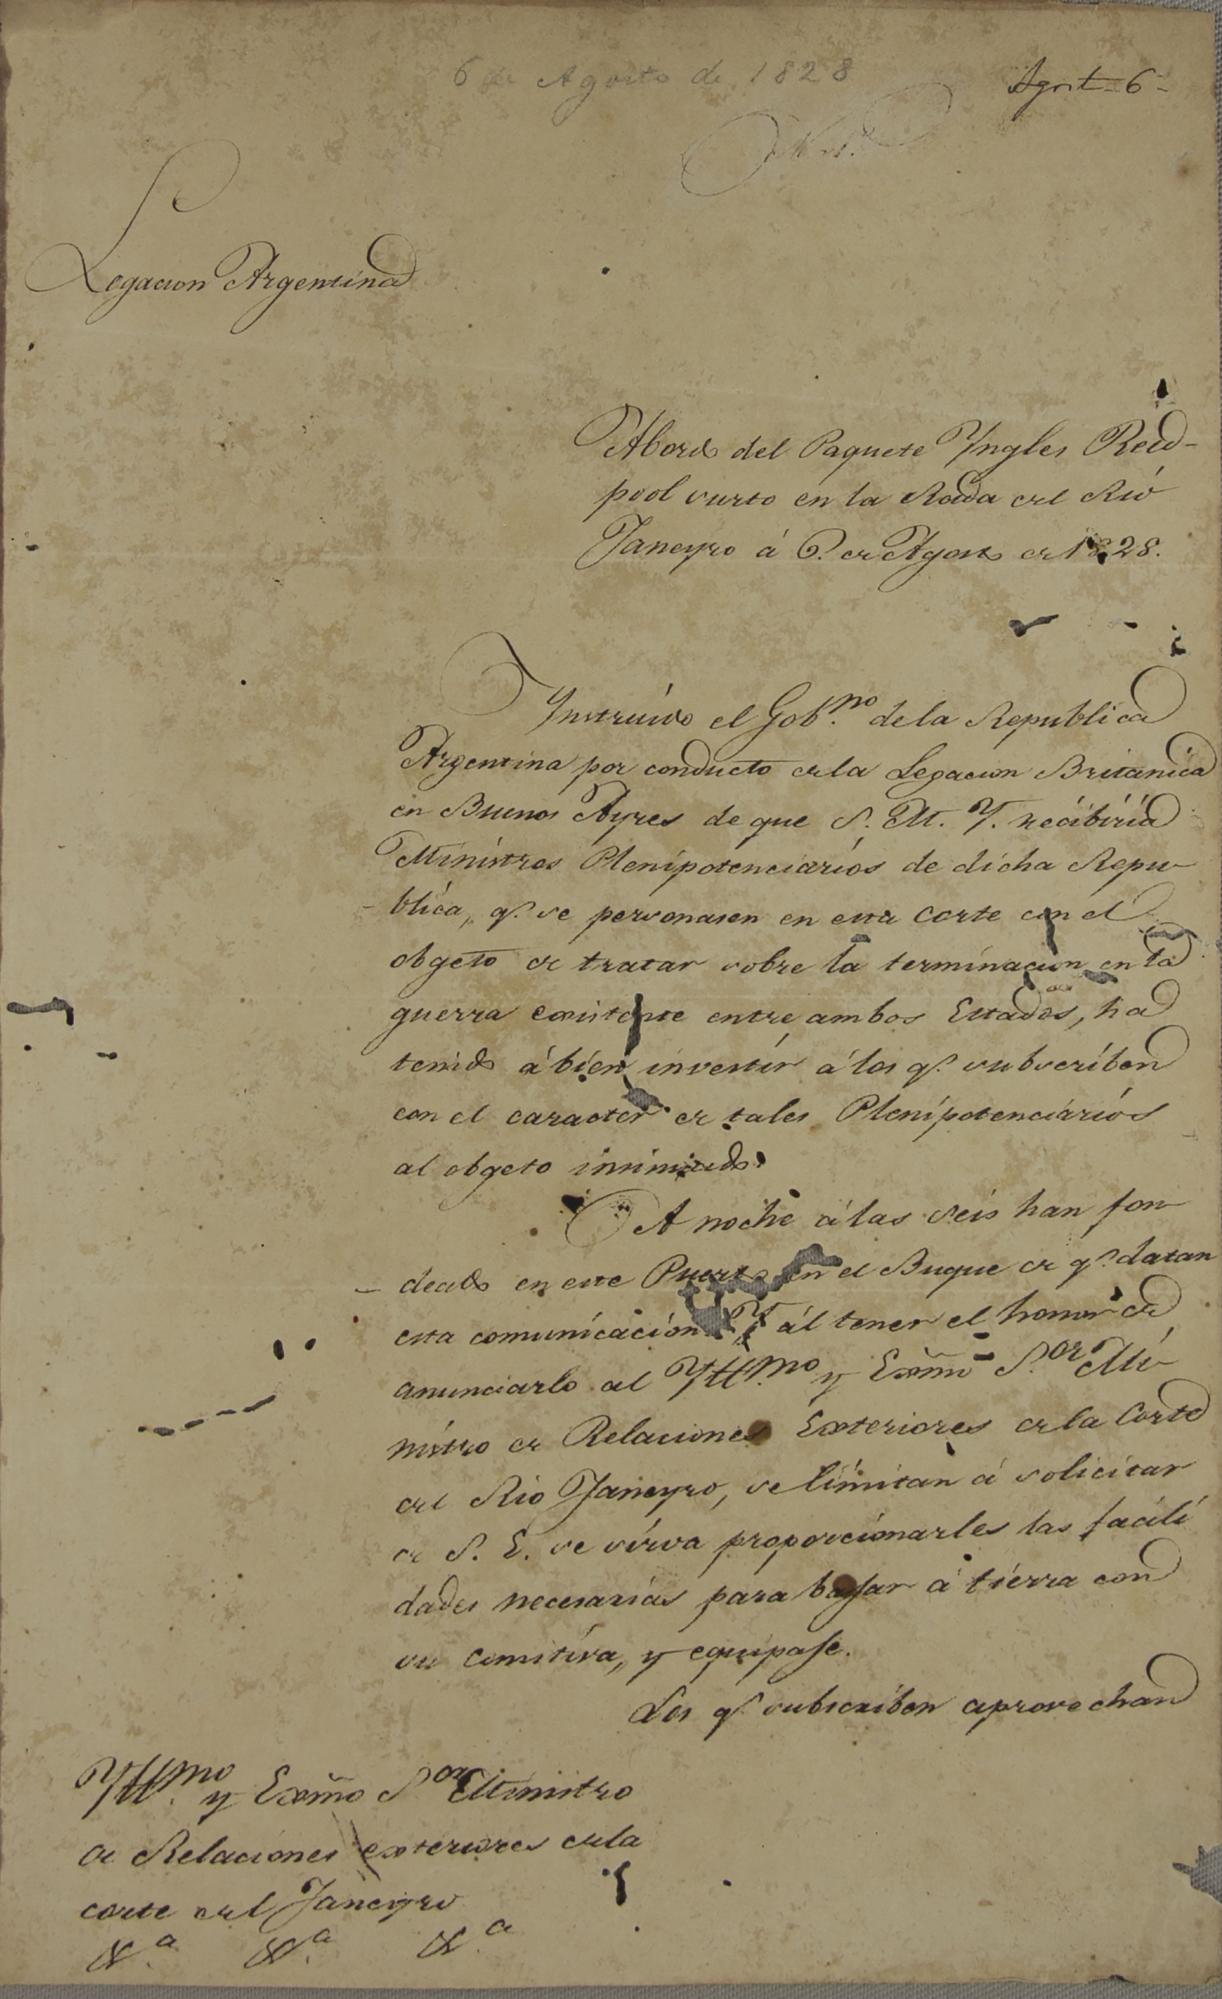 6 de Agosto de 1828
Agosto 6
Legacion Argentina
Abordo del Paquete Yngles Red-
pool surto en la Rada del Rio
Janeyro á 6. de Agosto de 1828.
Ynstruido el Gob.no de la Republica
Argentina por conducto de la Legacion Britanica
en Buenos Ayres de que S. M. Y. recibiria
Ministros Plenipotenciarios de dicha Repu-
blica, q.e se personasen en esta Corte con el
obgeto de tratar sobre la terminacion en la
guerra existente entre ambos Estados, ha
tenido á bien investir á los q.e subscriben
con el caracter de tales Plenipotenciarios
al obgeto insinuado.
A noche á las seis han fon-
deado en este Puerto en el Buque de q.e datan
esta comunicacion. Y ál tener el honor de
anunciarlo al Yll.mo y Exmo S.or Mi-
nistro de Relaciones Exteriores de la Corte
del Rio Janeyro, se limitan á solicitar
de S. E. se sirva proporcionarles las facili
dades necesarias para bajar á tierra con
su comitiva, y equipaje.
Los q.e subscriben aprovechan
Yll.mo y Exmo S.or Ministro
de Relaciones exteriores de la
corte del Janeyro
&.a &.a &.a